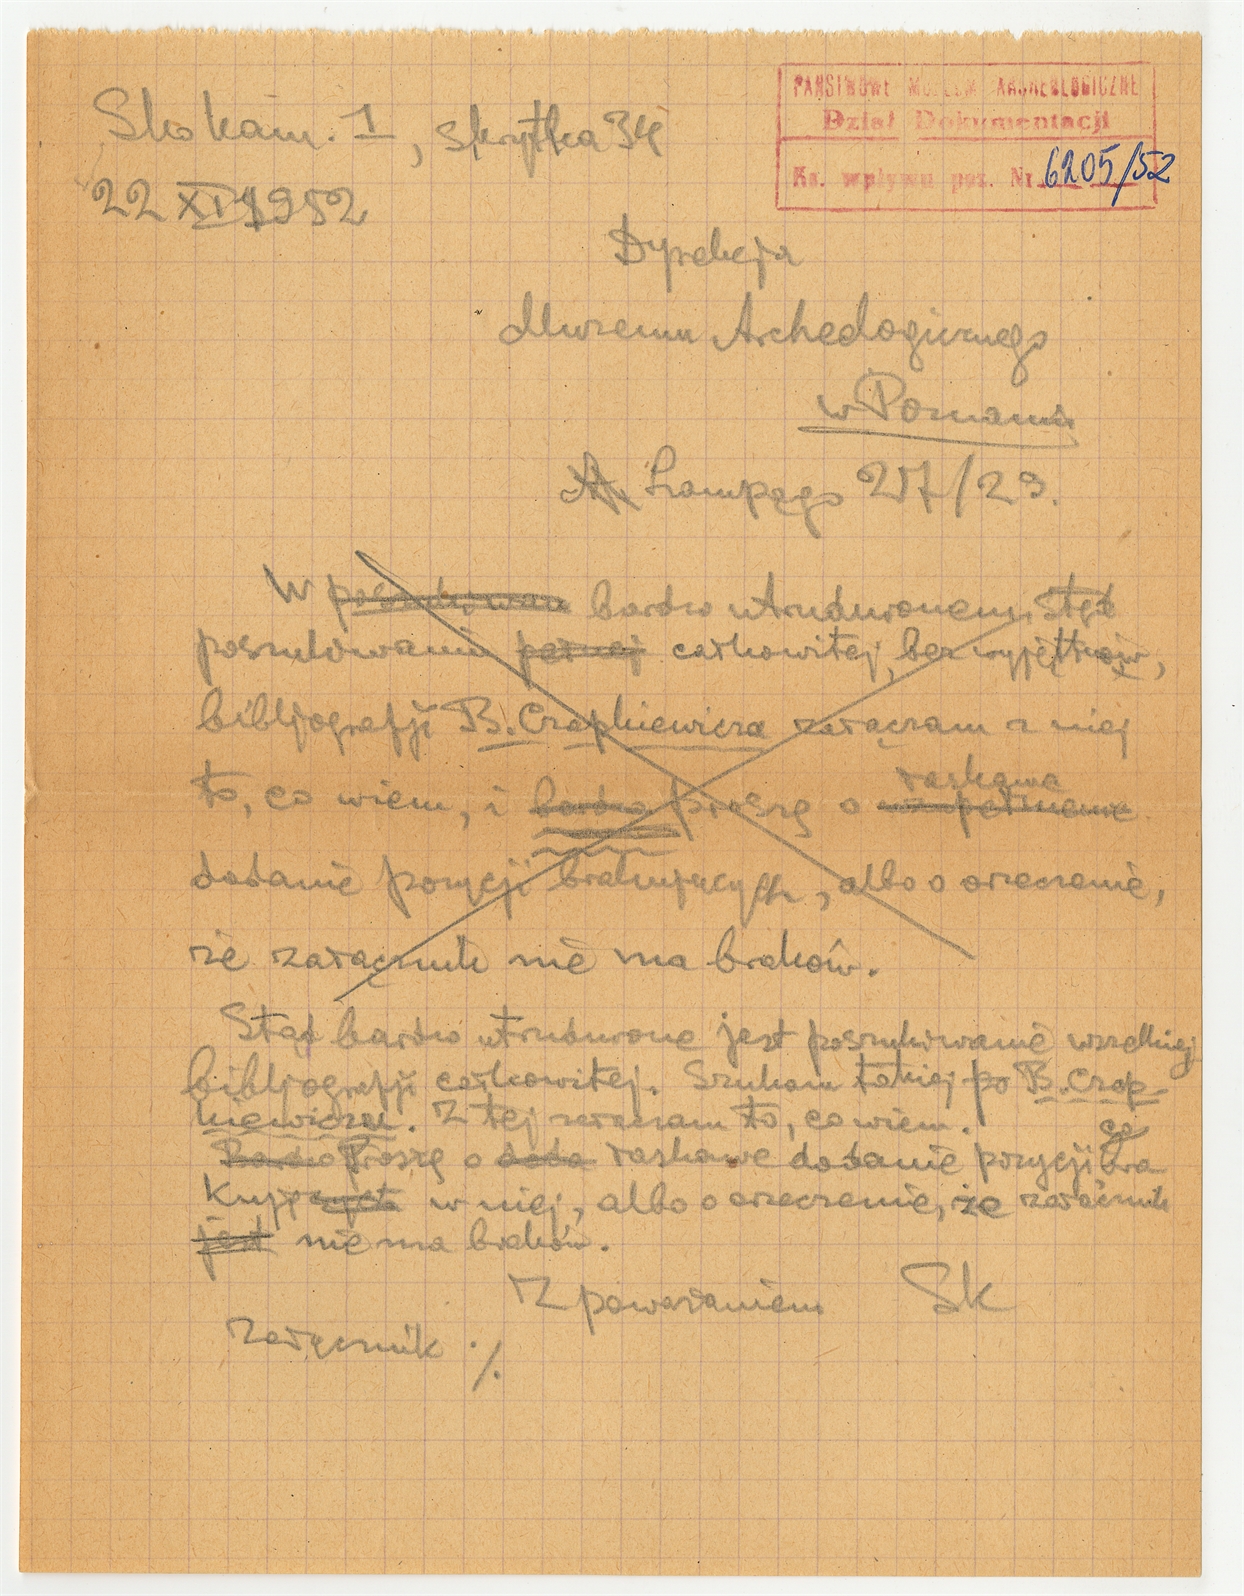 PAŃSTWOWE MUZEUM ARCHEOLOGICZNE
Dział Dokumentacji
Ks. wpływu poz. Nr 6205/52
Skokam. 1, skrytka 34
22 XI 1952
Dyrekcja
Muzeum Archeologicznego
w Poznaniu
Lampego 27/29.
W poszukiwaniu bardzo utrudnionem, stąd
poszukiwaniu pełnej całkowitej, bez wyjątków,
bibljografji B. Czapkiewicza załączam z niej
to, co wiem, i bardzo proszę o łaskawe uzupełnienie
dodanie pozycji brakujących, albo o orzeczenie,
że załącznik nie ma braków.
Stąd bardzo utrudnione jest poszukiwanie wszelkiej
bibljografji całkowitej. Szukam takiej po B. Czap-
kiewiczu. Z tej załączam to, co wiem.
Bardzo Proszę o doda łaskawe dodanie pozycji bra
kującego w niej, albo o orzeczenie, że załącznik
jest nie ma braków.
Z poważaniem SK
Załącznik ./.